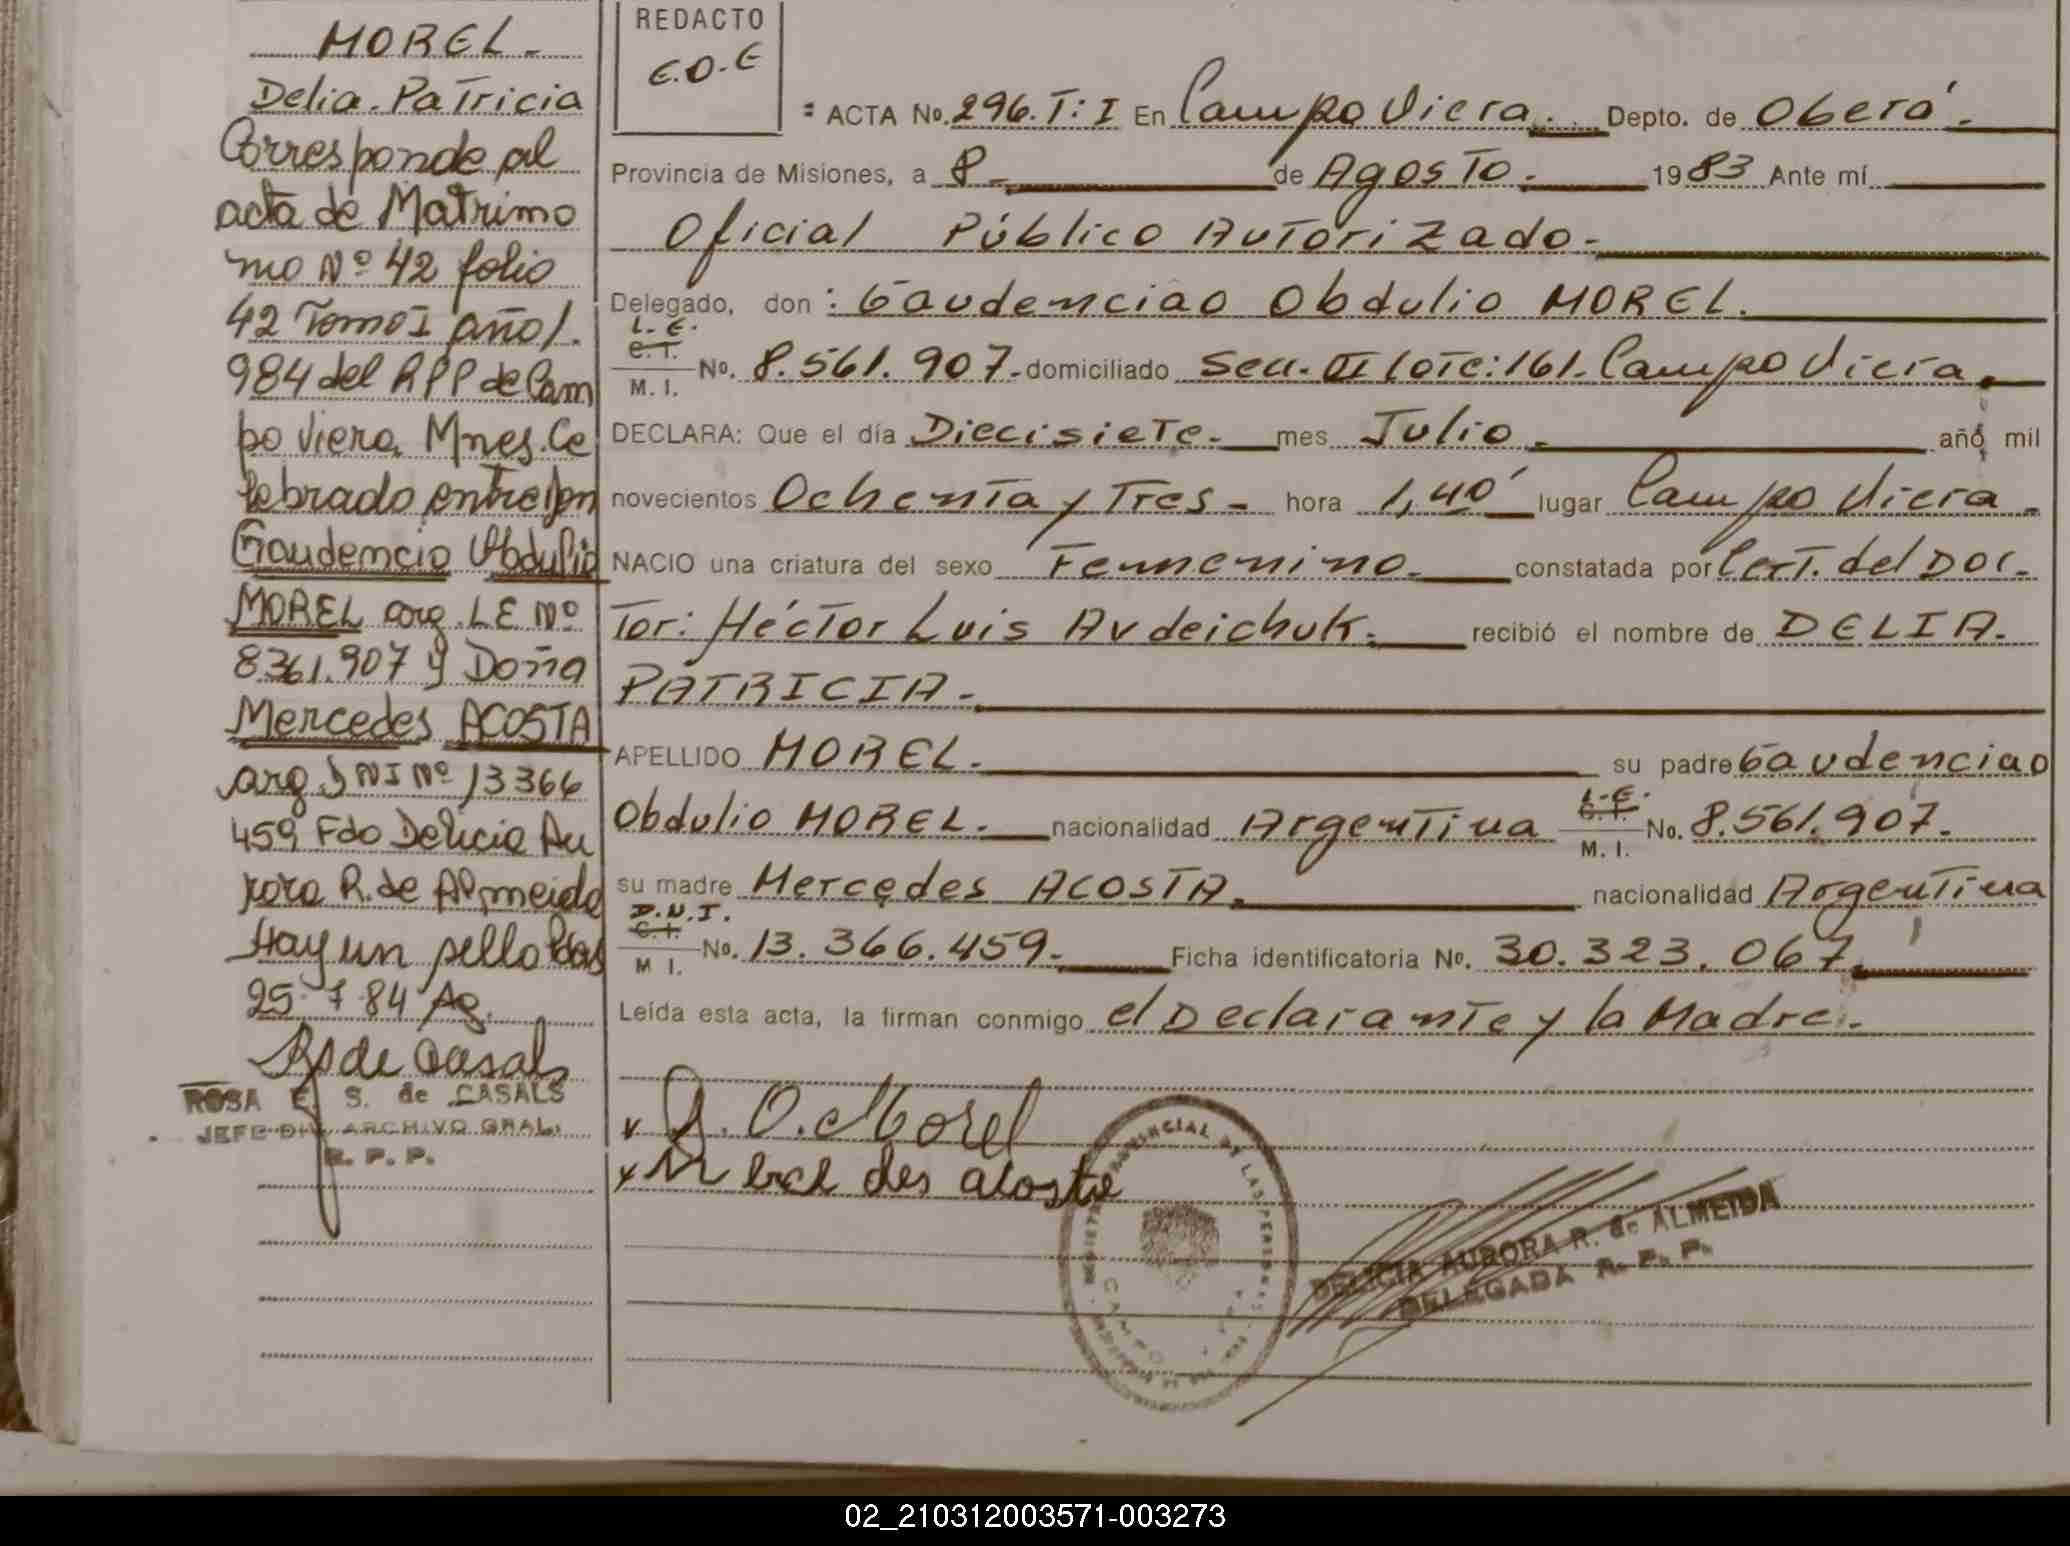 MOREL-
Delia. Patricia
Corresponde al
acta de Matrimo
mo Nº 42 folio
42 Tomo I año 1.
984 del RPP de Cam
po Viera. Mnes. Ce
lebrado entre Don
Gaudencio Obdulio
MOREL arg. LE Nº
8361.907 y Doña
Mercedes ACOSTA
arg DNI Nº 13366
459 Fdo Delicia Au
rora R. de Almeida
Hay un sello Pdas
25-7-84 Ag.
RS de Casals
ROSA E. S. de CASALS
JEFE DIV. ARCHIVO GRAL.
R. P. P.
REDACTO
E.O.E
: ACTA No. 296. T: I En Campo Viera. Depto. de Oberá.
Provincia de Misiones, a 8 de Agosto. 1983 Ante mí
Oficial Público Autorizado.
Delegado, don : Gaudenciao Obdulio MOREL.
L.E.
C.I.
M. I. No. 8.561.907. domiciliado Secc. II Lote: 161. Campo Viera.
DECLARA: Que el día Diecisiete. mes Julio. año mil
novecientos Ochenta y Tres- hora 1,40' lugar Campo Viera.
NACIO una criatura del sexo Femenino. constatada por Cert. del Doc-
Tor: Héctor Luis Avdeichuk. recibió el nombre de DELIA.
PATRICIA.
APELLIDO MOREL. su padre Gaudenciao
Obdulio MOREL. nacionalidad Argentina L.E. C.I. M. I. No. 8.561.907.
su madre Mercedes ACOSTA. nacionalidad Argentina
D.N.I.
C.I.
M I. No. 13.366.459. Ficha identificatoria No. 30.323.067.
Leída esta acta, la firman conmigo el Declarante y la Madre.
x G. O. Morel
x M erce des acosta
REGISTRO PROVINCIAL DE LAS PERSONAS
CAMPO
DELICIA AURORA R. de ALMEIDA
DELEGADA R. P. P.
02_210312003571-003273